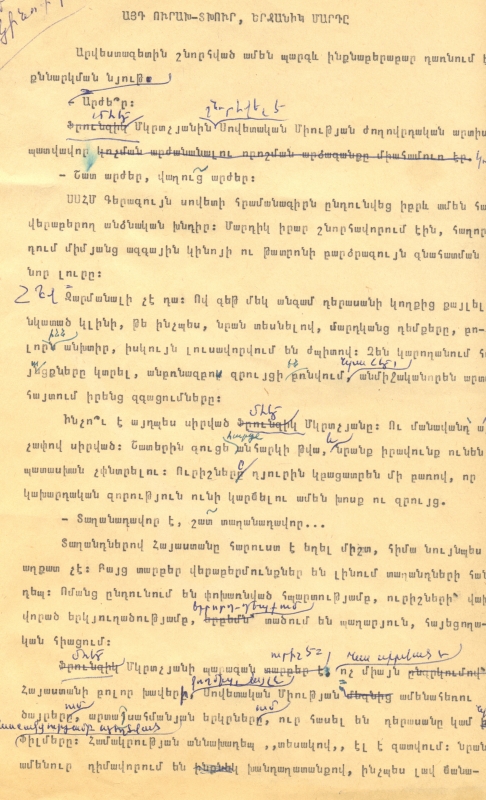 ԱՅԴ ՈՒՐԱԽ-ՏԽՈՒՐ, ԵՐՋԱՆԻԿ ՄԱՐԴԸ
Արվեստագետին շնորհված ամեն պարգև ինքնաբերաբար դառնում է
քննարկման նյութ
- Արժե՞ր:
Մհեր
Ֆրունզիկ Մկրտչյանին Սովետական Միության ժողովրդական արտիս
պատվավոր կոչման արժանանալու որոշման արձագանքը միահամուռ էր.
- Շատ արժեր, վաղուց արժեր:
ՍՍՀՄ Գերագույն սովետի հրամանագիրն ընդունվեց իբրև ամեն հա
վերաբերող անձնական խնդիր: Մարդիկ իրար շնորհավորում էին, հաղոր
դում միմյանց ազգային կինոյի ու թատրոնի բարձրագույն գնահատման
նոր լուրը:
Զարմանալի չէ դա: Ով գեթ մեկ անգամ դերասանի կողքից քայլել
նկատած կլինի, թե ինչպես, նրան տեսնելով, մարդկանց դեմքերը, բո-
լորն անխտիր, իսկույն լուսավորվում են ժպիտով: Չեն կարողանում հ
յացքները կտրել, անբռնազբոս զրույցի բռնվում, անմիջականորեն արտ
հայտում իրենց զգացումները:
Մհեր
Ինչո՞ւ է այդպես սիրված Ֆրունզիկ Մկրտչյանը: Ու մանավանդ՝ ա
չափով սիրված: Շատերին գուցե անհարկի թվա, նրանք իրավունք ունեն
պատասխան չփնտրելու: Ուրիշները դյուրին կբացատրեն մի բառով, որ
կախարդական զորություն ունի կարճելու ամեն խոսք ու զրույց.
- Տաղանդավոր է, շատ տաղանդավոր...
Տաղանդներով Հայաստանը հարուստ է եղել միշտ, հիմա նույնպես
աղքատ չէ: Բայց տարբեր վերաբերմունքներ են լինում տաղանդների հան
դեպ: Ոմանց ընդունում են փոխանված հպարտությամբ, ուրիշների՝ վախ
վորած երկյուղածությամբ, երբեմն տածում են պաղարյուն, հայեցողա-
կան հիացում:
Մհեր
Ֆրունզիկ Մկրտչյանի պարագան տարբեր է. ոչ միայն ընդրկումով
Հայաստանի բոլոր խավերի, Սովետական Միության մեզնից ամենահեռու
ծայրերը, արտասահմանյան երկրները, ուր հասել են դերասանը կամ
ֆիլմերը: Համակրության աննախադեպ ,,տեսակով,, էլ է զատվում: Նրան
ամենուր դիմավորում են խանդաղատանքով, ինչպես լավ ծանա-